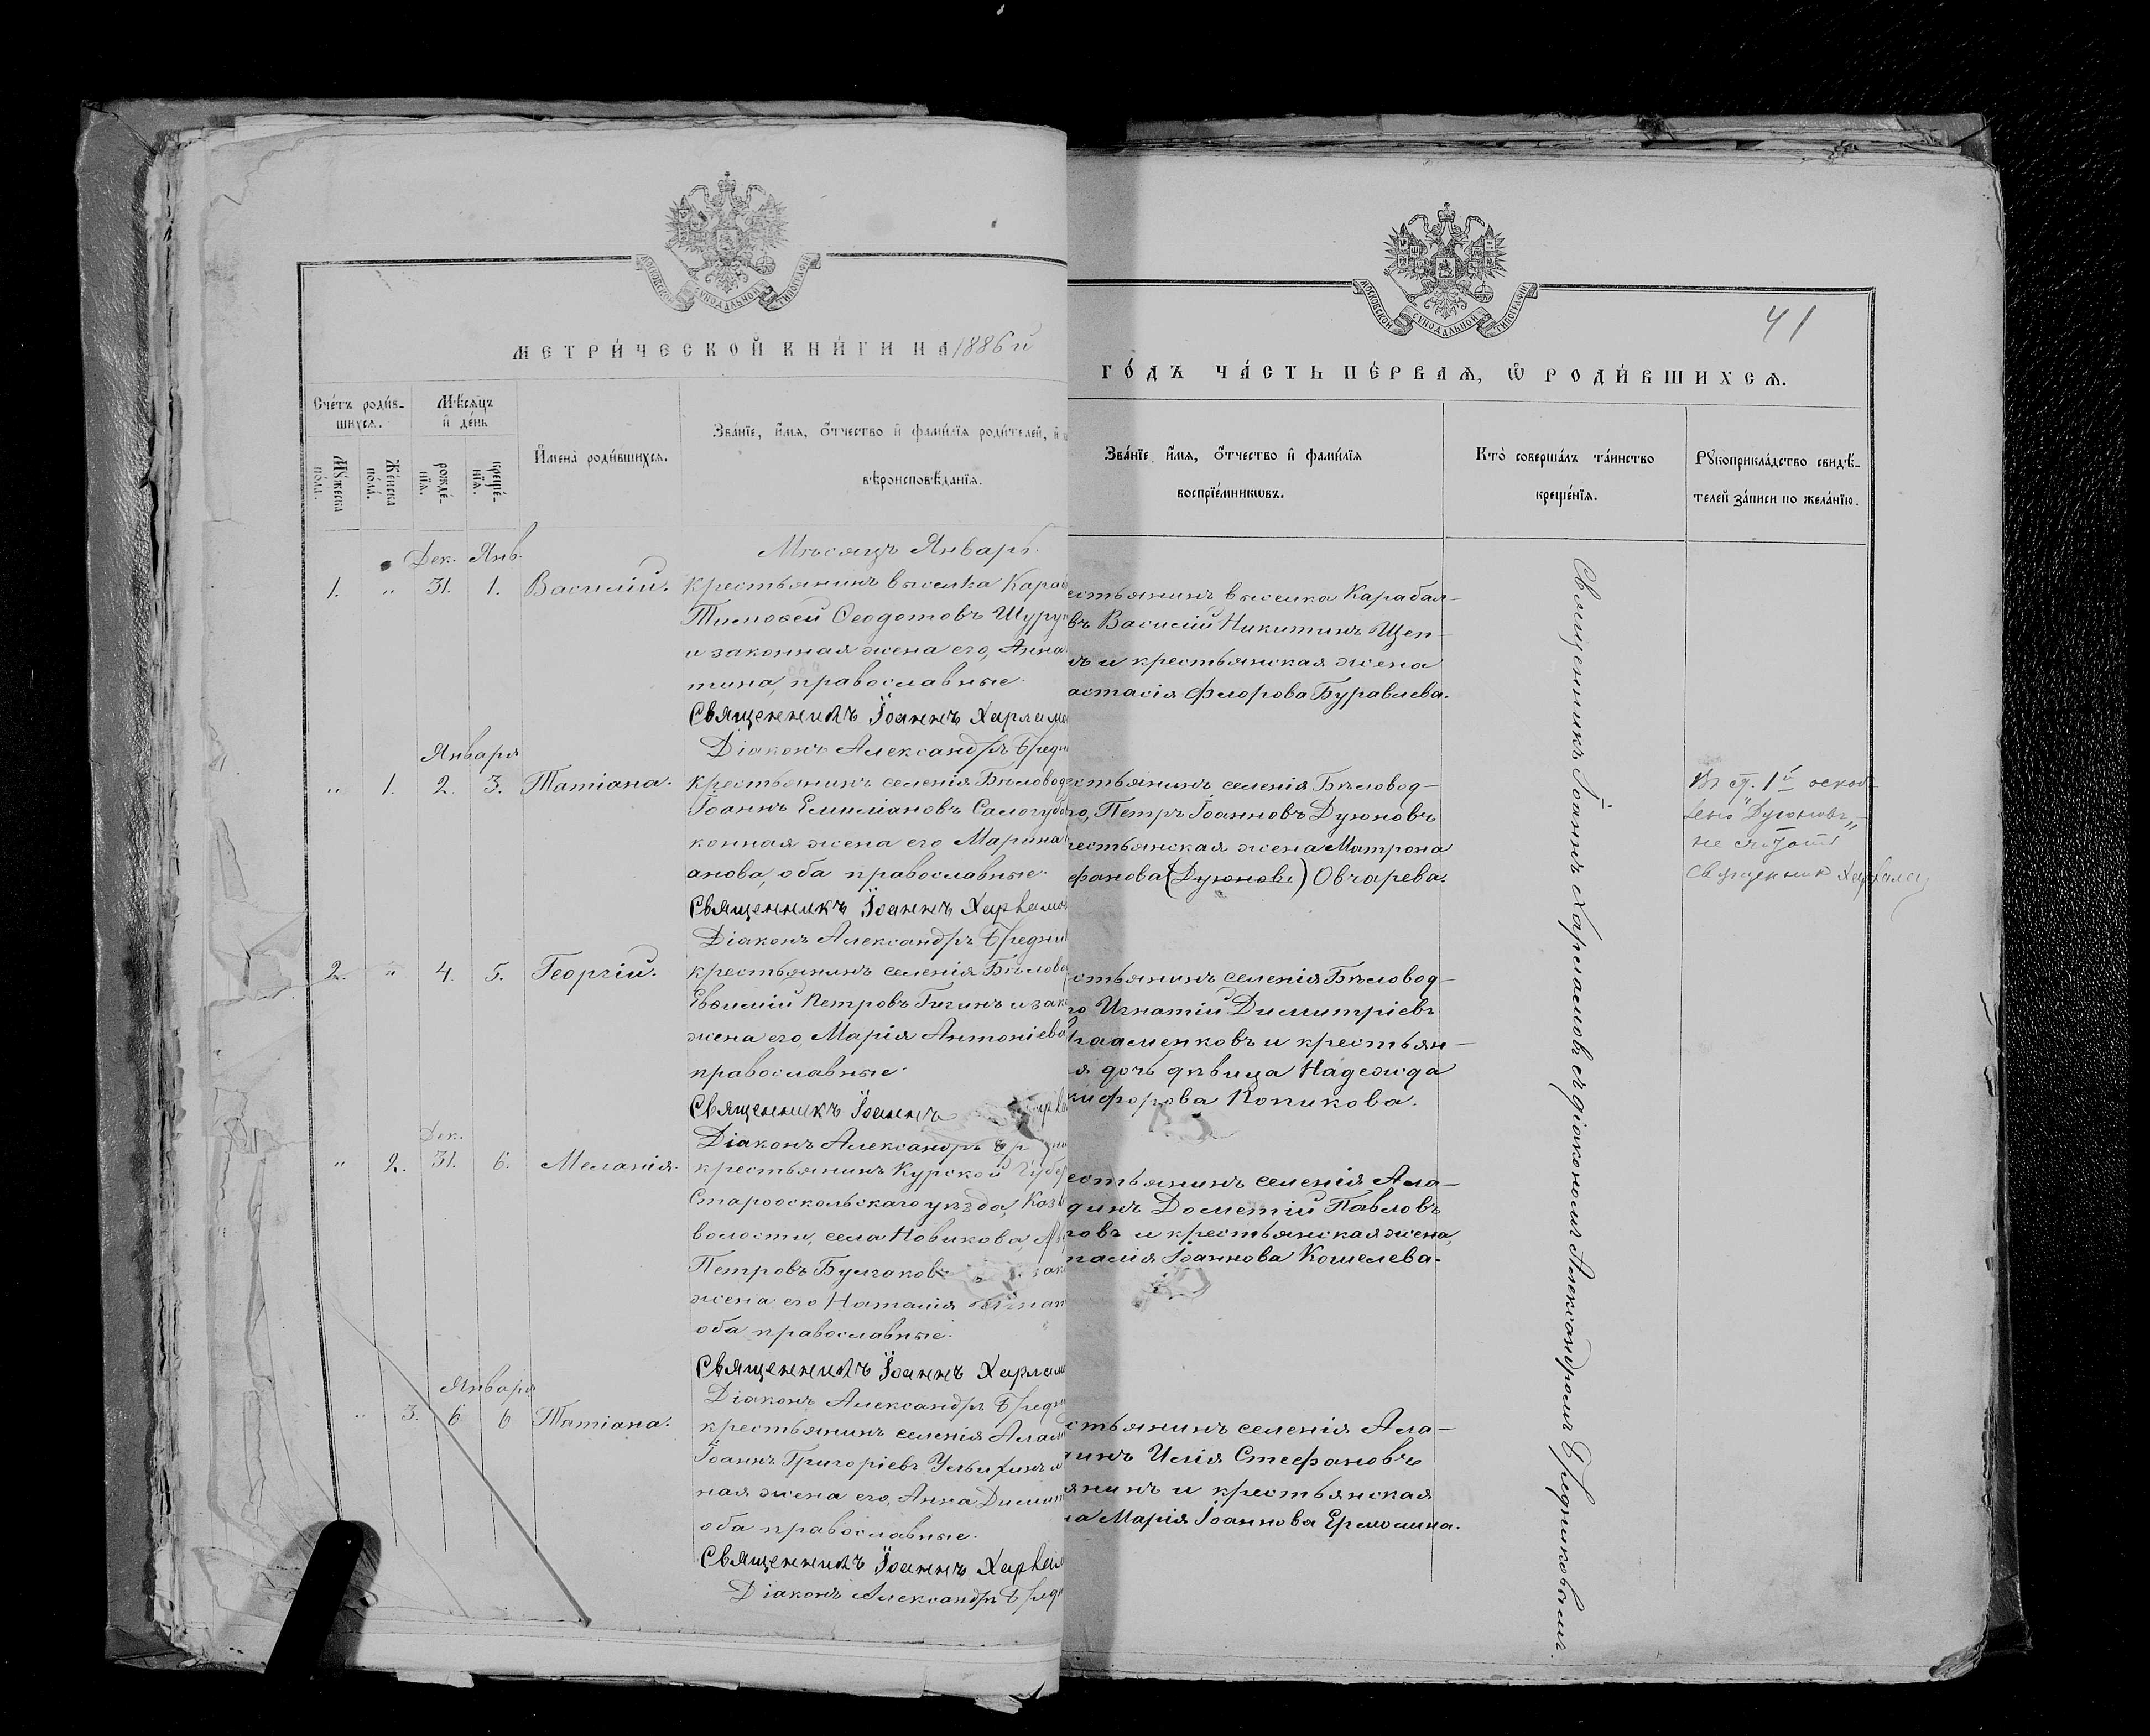 МОСКОВСКОЙ СѴНОДАЛЬНОЙ ТИПОГРАФІИ
МЕТРИ́ЧЕСКОЙ КНИ́ГИ НА 1886 й
Сче́тъ роди́в-
шихсѧ.
Мѣ́сѧцъ
и҆ де́нь
Мꙋ́жеска
по́ла.
Же́нска
по́ла.
рожде́-
нїѧ.
креще́-
нїѧ.
И҆мена̀ роди́вшихсѧ.
Зва́нїе, и҆́мѧ, ѻ҆́тчество и҆ фами́лїѧ роди́телей, и҆
вѣроисповѣ́данїѧ.
Мѣсяцъ Январь.
Дек. Янв.
1. " 31. 1. Василій. крестьянинъ выселка Кара
Тимоѳей Ѳеодотовъ Шуру
и законная жена его, Анна
тина, православные.
Священникъ Іоаннъ Харламо
Діаконъ Александръ Бредн
Января
" 1. 2. 3. Татіана. крестьянинъ селенія Бѣловод
Іоаннъ Емиліановъ Самогубо
конная жена его Марина
анова, оба православные.
Священникъ Іоаннъ Харламо
Діаконъ Александръ Бредни
2. " 4. 5. Георгій. крестьянинъ селенія Бѣлово
Евѳимій Петровъ Гигинъ и зак
жена его, Марія Антоніева
православные.
Священникъ Іоаннъ
Діаконъ Александръ
Дек.
" 2. 31. 6. Меланія. крестьянинъ Курской Губер
Старооскольскаго уѣзда, Коз
волости, села Новикова,
Петровъ Булгаковъ зак
жена его Наталія
оба православные.
Священникъ Іоаннъ Харлам
Діаконъ Александръ Бредн
Января
" 3. 6 6 Татіана. крестьянинъ селенія Алам
Іоаннъ Григоріевъ и
ная жена его, Анна Димит
оба православные.
Священникъ Іоаннъ Харлам
Діаконъ Александръ Бредн
МОСКОВСКОЙ СѴНОДАЛЬНОЙ ТИПОГРАФІИ
41
ГО́ДЪ ЧА́СТЬ ПЕ́РВАѦ, Ѡ҆ РОДИ́ВШИХСѦ.
Зва́нїе, и҆́мѧ, ѻ҆́тчество и҆ фами́лїѧ
воспрїе́мникѡвъ.
Кто̀ соверша́лъ та́инство
креще́нїѧ.
Рꙋкоприкла́дство свидѣ́-
телей за́писи по жела́нїю.
естьянинъ выселка Карабал-
въ Василій Никитинъ Щеп-
ъ и крестьянская жена
астасія Флорова Буравлева.
стьянинъ селенія Бѣловод-
го, Петръ Іоанновъ Дуюновъ
рестьянская жена Матрона
ефанова (Дуюнова) Овчарева.
стьянинъ селенія Бѣловод-
го Игнатій Димитріевъ
и крестьян-
я дочь дѣвица Надежда
кифорова Копикова.
естьянинъ селенія Ала-
динъ Дометій Павловъ
ровъ и крестьянская жена,
талія Іоаннова Кошелева.
стьянинъ селенія Ала-
динъ Илія Стефановъ
янинъ и крестьянская
на Марія Іоаннова Ермолина.
Священникъ Іоаннъ Харламовъ съ діакономъ Александромъ Бредниковымъ.
Въ ст. 1й оскоб-
лено "Дуюновъ"
не считать
Священник Харламов